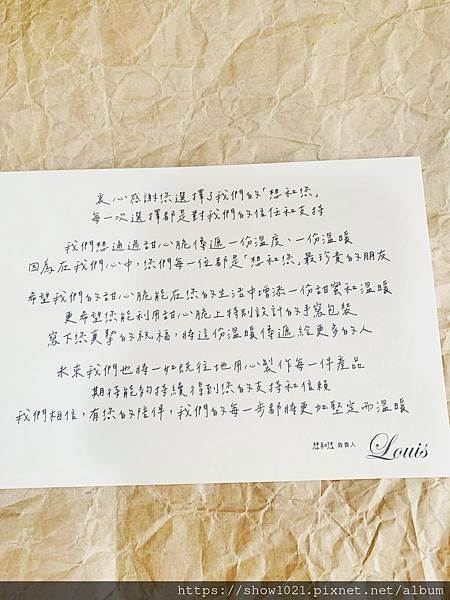 衷心感謝您選擇了我們的「想和您」
每一次選擇都是對我們的信任和支持
我們想通過甜心脆傳遞一份溫度、一份溫暖
因為在我們心中，您們每一位都是「想和您」最珍貴的朋友
希望我們的甜心脆能在您的生活中增添一份甜蜜和溫暖
更希望您能利用甜心脆上特別設計的手寫包裝
寫下您真摯的祝福，將這份溫暖傳遞給更多的人
未來我們也將一如既往地用心製作每一件產品
期待能夠持續得到您的支持和信賴
我們相信，有您的陪伴，我們的每一步都將更加堅定而溫暖
想和您 負責人 Louis
https://show1021.pixnet.net/album